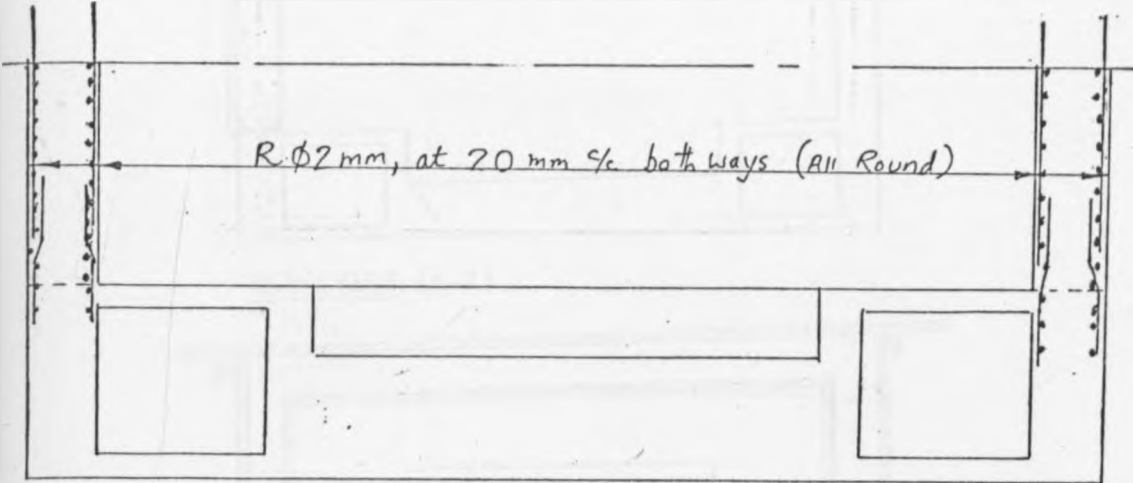 R Φ2 mm, at 20 mm c/c both ways (All Round)